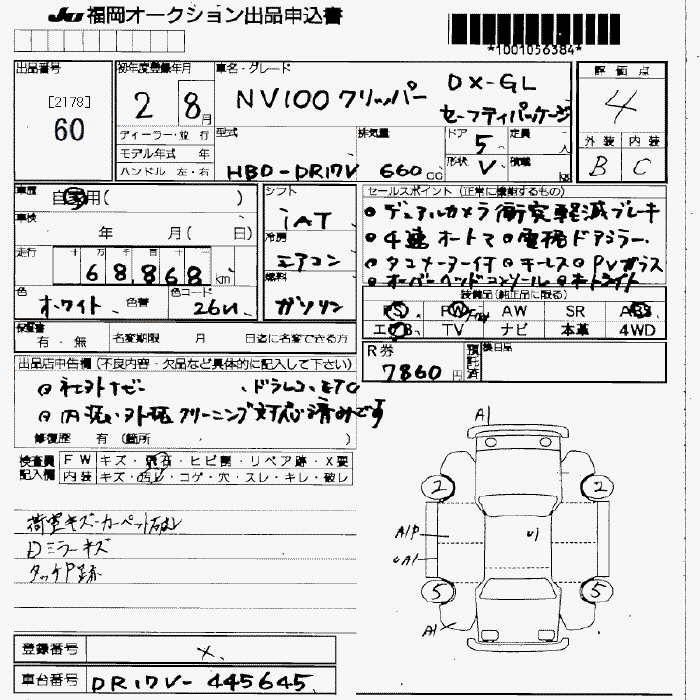 JU 福岡オークション出品申込書
*1001056384*
出品番号
[2178]
60
初年度登録年月
2 8月
ディーラー・並行
モデル年式 年
ハンドル 左・右
車名・グレード
NV100 クリッパー
DX-GL
セーフティパッケージ
型式
HBD-DR17V
排気量
660 cc
ドア 5
定員 人
形状 V
積載 kg
評価点
4
外装 内装
B C
車歴
自家用( )
車検
年 月( 日)
走行
68,868 km
色
ホワイト 色替
色コード
26U
シフト
iAT
冷房
エアコン
燃料
ガソリン
保証書
有・無 名変期限 月 日迄に名変できる方
セールスポイント(正常に機能するもの)
デュアルカメラ衝突軽減ブレーキ
4速オートマ 電格ドアミラー
タコメーター付 キーレス PVガラス
オーバーヘッドコンソール オートライト
装備品(純正品に限る)
PS PW AW SR ABS
エアB TV ナビ 本革 4WD
R券
7860円
預託済
後日品
出品店申告欄(不良内容・欠品など具体的に記入して下さい)
社外ナビー、ドラレコ、ETC
内装・外装クリーニング対応済みです
修復歴 有(箇所 )
検査員記入欄
FW キズ・飛石・ヒビ割・リペア跡・X要
内装 キズ・汚レ・コゲ・穴・スレ・キレ・破レ
荷室キズ・カーペット汚レ
Dミラーキズ
タッチP跡
A1
2 2
A/P
A1
U1
5 5
A1
登録番号 ×
車台番号 DR17V-445645